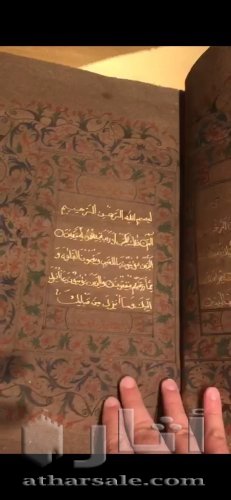 بسم الله الرحمن الرحيم
الم ذلك الكتاب لا ريب فيه هدى للمتقين
الذين يؤمنون بالغيب ويقيمون الصلوة و
مما رزقنهم ينفقون والذين يؤمنون بما أنزل
إليك وما أنزل من قبلك
آثار
atharsale.com